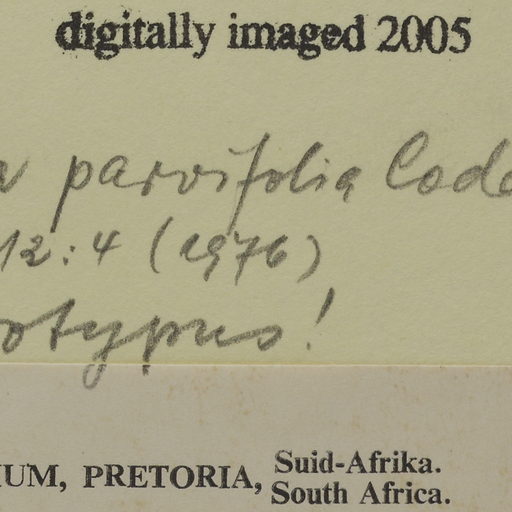 digitally imaged 2005
parvifolia Codd
12:4 (1976)
otypus!
IUM, PRETORIA, Suid-Afrika.
South Africa.